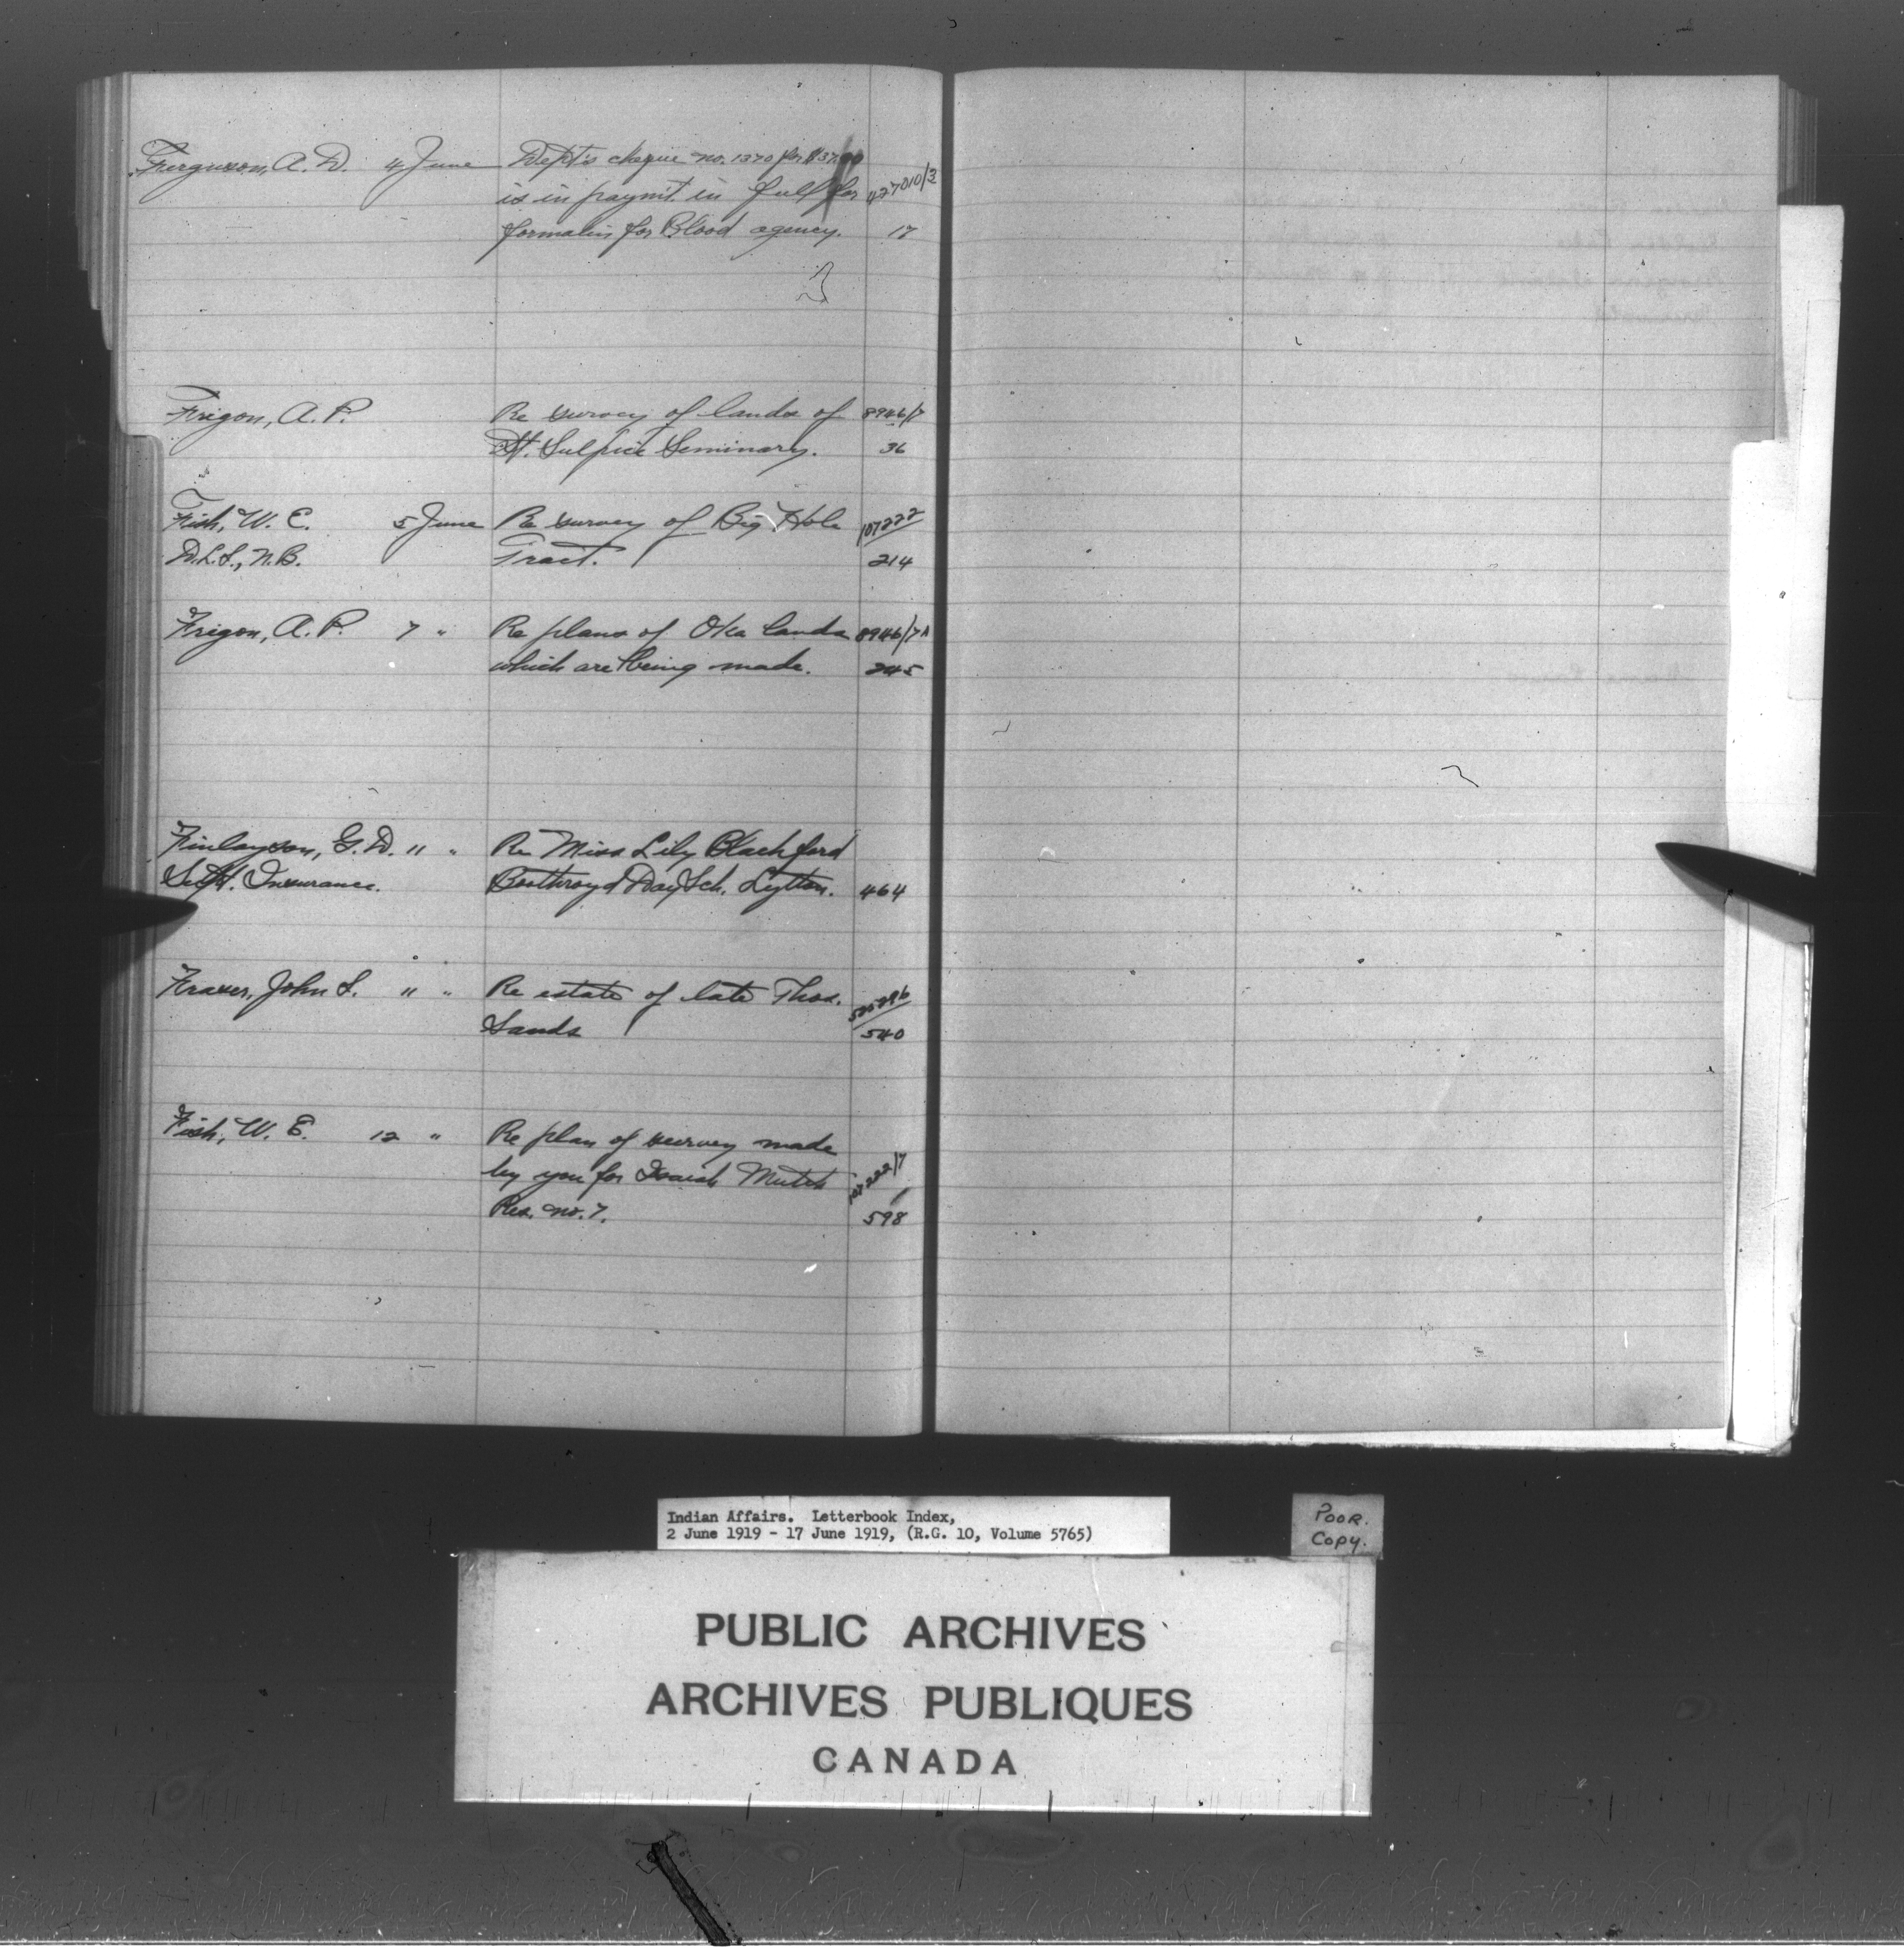 Ferguson, A. D. 4 June Dept's cheque no. 1370 for $37.00
is in paym't. in full for 427010/3
formalin for Blood agency. 17
Frigon, A. P. Re survey of lands of 8946/7
St. Sulpice Seminary. 36
Fish, W. E. 5 June Re survey of Big Hole 107222
D.L.S., N.B. Tract. 214
Frigon, A. P. 7 " Re plans of Oka lands 8946/7A
which are being made. 245
Finlayson, G. D. 11 " Re Miss Lily Blachford
Supt. Insurance. Boothroyd Day Sch. Lytton. 464
Fraser, John S. 11 " Re estate of late Thos.
Sands 540
Fish, W. E. 12 " Re plan of survey made
by you for Isaiah Mutch 107222/7
Res. no. 7. 598
Indian Affairs. Letterbook Index,
2 June 1919 - 17 June 1919, (R.G. 10, Volume 5765)
POOR.
Copy.
PUBLIC ARCHIVES
ARCHIVES PUBLIQUES
CANADA